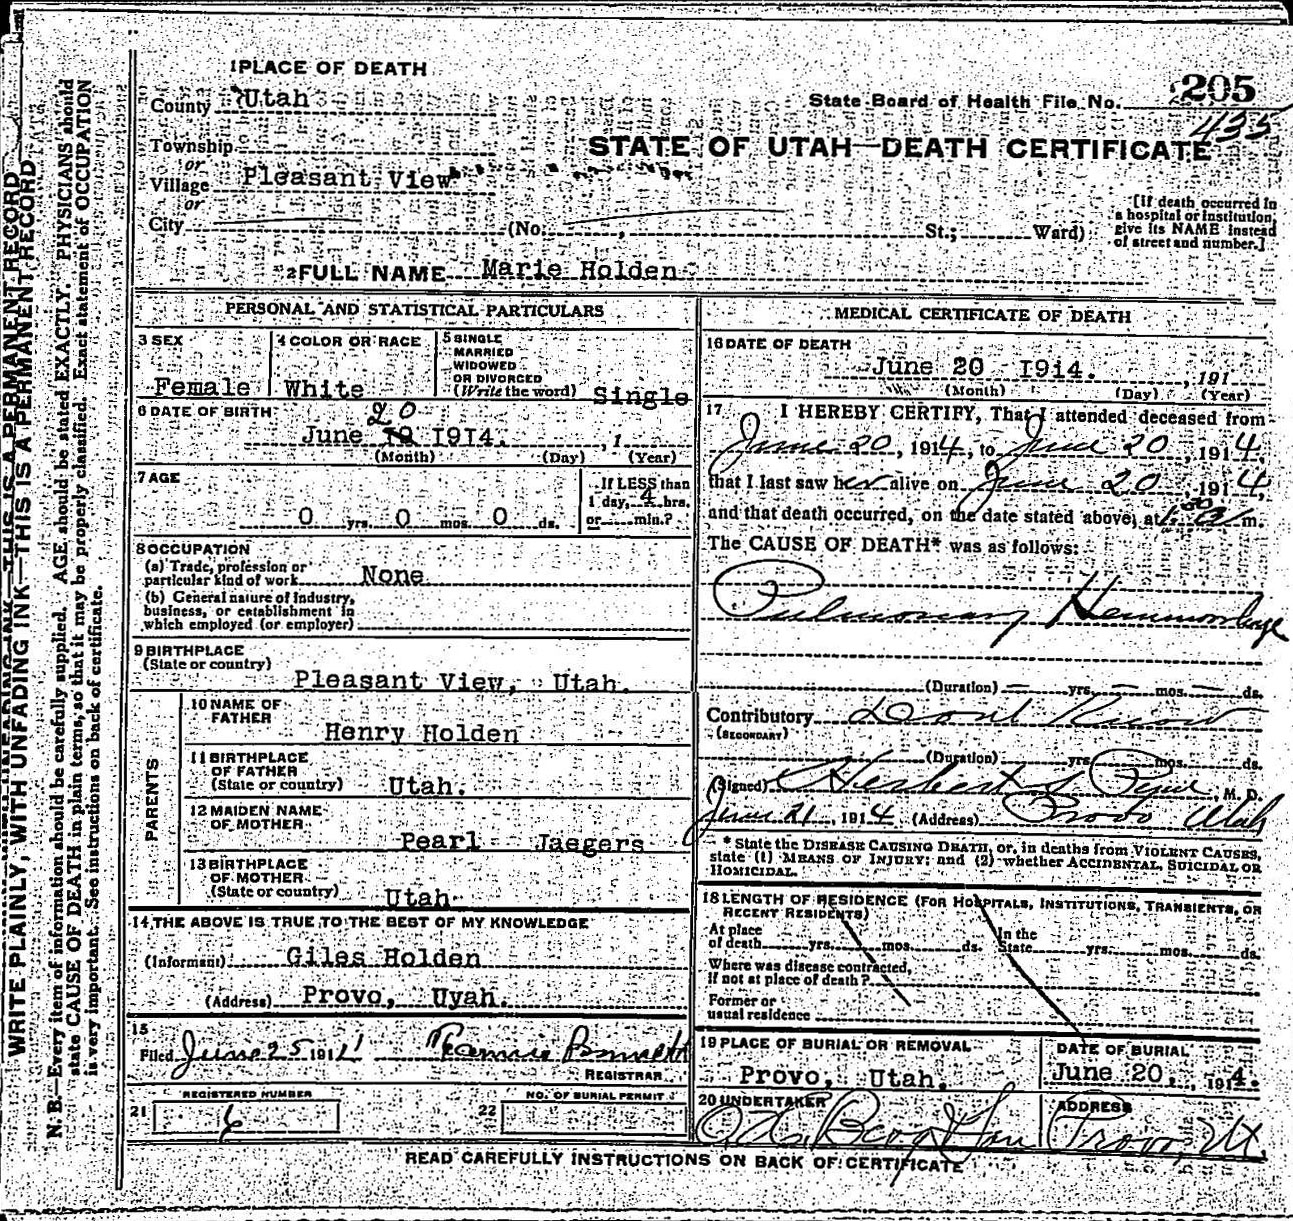 WRITE PLAINLY, WITH UNFADING INK—THIS IS A PERMANENT RECORD
N. B.—Every item of information should be carefully supplied. AGE should be stated EXACTLY. PHYSICIANS should
state CAUSE OF DEATH in plain terms, so that it may be properly classified. Exact statement of OCCUPATION
is very important. See instructions on back of certificate.
1 PLACE OF DEATH
County Utah
State Board of Health File No. 205
435
Township
or
Village Pleasant View
or
City (No. , St.; Ward)
STATE OF UTAH—DEATH CERTIFICATE
[If death occurred in
a hospital or institution,
give its NAME instead
of street and number.]
2 FULL NAME Marie Holden
PERSONAL AND STATISTICAL PARTICULARS
3 SEX
Female
4 COLOR OR RACE
White
5 SINGLE
MARRIED
WIDOWED
OR DIVORCED
(Write the word) Single
6 DATE OF BIRTH
20
June 19 1914. , 1
(Month) (Day) (Year)
7 AGE
0 yrs. 0 mos. 0 ds.
If LESS than
1 day, 4 hrs.
or min.?
8 OCCUPATION
(a) Trade, profession or
particular kind of work None
(b) General nature of industry,
business, or establishment in
which employed (or employer)
9 BIRTHPLACE
(State or country)
Pleasant View, Utah.
PARENTS
10 NAME OF
FATHER
Henry Holden
11 BIRTHPLACE
OF FATHER
(State or country) Utah.
12 MAIDEN NAME
OF MOTHER
Pearl Jaegers
13 BIRTHPLACE
OF MOTHER
(State or country)
Utah
14 THE ABOVE IS TRUE TO THE BEST OF MY KNOWLEDGE
(Informant) Giles Holden
(Address) Provo, Uyah.
15
Filed June 25 191
REGISTRAR
21 REGISTERED NUMBER
6
22 NO. OF BURIAL PERMIT
MEDICAL CERTIFICATE OF DEATH
16 DATE OF DEATH
June 20 1914. , 191
(Month) (Day) (Year)
17 I HEREBY CERTIFY, That I attended deceased from
June 20, 1914, to June 20, 1914,
that I last saw her alive on June 20, 1914,
and that death occurred, on the date stated above, at m.
The CAUSE OF DEATH* was as follows:
Pulmonary Hemmorhage
(Duration) — yrs. — mos. — ds.
Contributory Dont Know
(SECONDARY)
(Duration) yrs. mos. ds.
(Signed) Herbert S Pyne, M. D.
June 21, 1914 (Address) Provo Utah
* State the DISEASE CAUSING DEATH, or, in deaths from VIOLENT CAUSES,
state (1) MEANS OF INJURY; and (2) whether ACCIDENTAL, SUICIDAL OR
HOMICIDAL.
18 LENGTH OF RESIDENCE (FOR HOSPITALS, INSTITUTIONS, TRANSIENTS, OR
RECENT RESIDENTS)
At place
of death yrs. mos. ds.
In the
State yrs. mos. ds.
Where was disease contracted,
if not at place of death?
Former or
usual residence
19 PLACE OF BURIAL OR REMOVAL
Provo, Utah.
DATE OF BURIAL
June 20, , 1914.
20 UNDERTAKER
ADDRESS
Provo, Ut.
READ CAREFULLY INSTRUCTIONS ON BACK OF CERTIFICATE